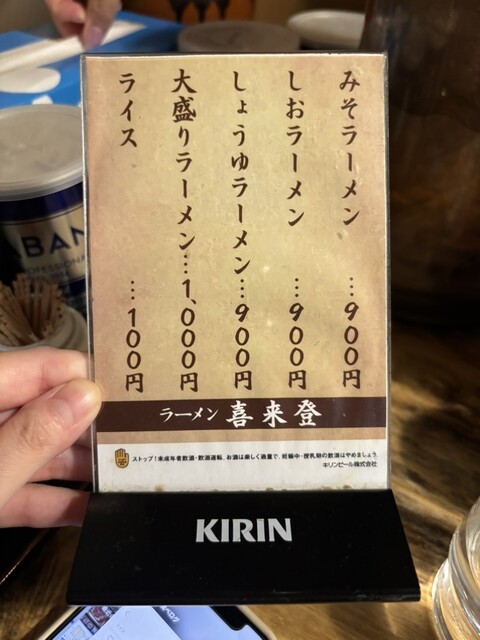 みそラーメン …900円
しおラーメン …900円
しょうゆラーメン…900円
大盛りラーメン…1,000円
ライス …100円
ラーメン 喜来登
ストップ!未成年者飲酒・飲酒運転。お酒は楽しく適量で。妊娠中・授乳期の飲酒はやめましょう。
キリンビール株式会社
KIRIN